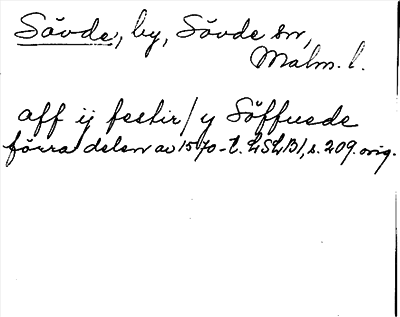 Sövde, by, Sövde sn,
Malm. l.
aff ij festir / y Söffuede
förra delen av 1570-t. LSLB1, s. 209. orig.